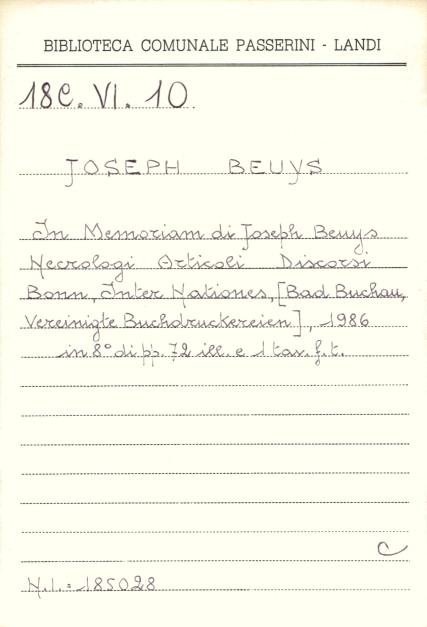 BIBLIOTECA COMUNALE PASSERINI - LANDI
18C. VI. 10.
JOSEPH BEUYS
In Memoriam di Joseph Beuys
Necrologi Articoli Discorsi
Bonn, Inter Nationes, [Bad Buchau,
Vereinigte Buchdruckereien], 1986
in 8° di pp. 72 ill. e 1 tav. f. t.
C
N.I.= 185028